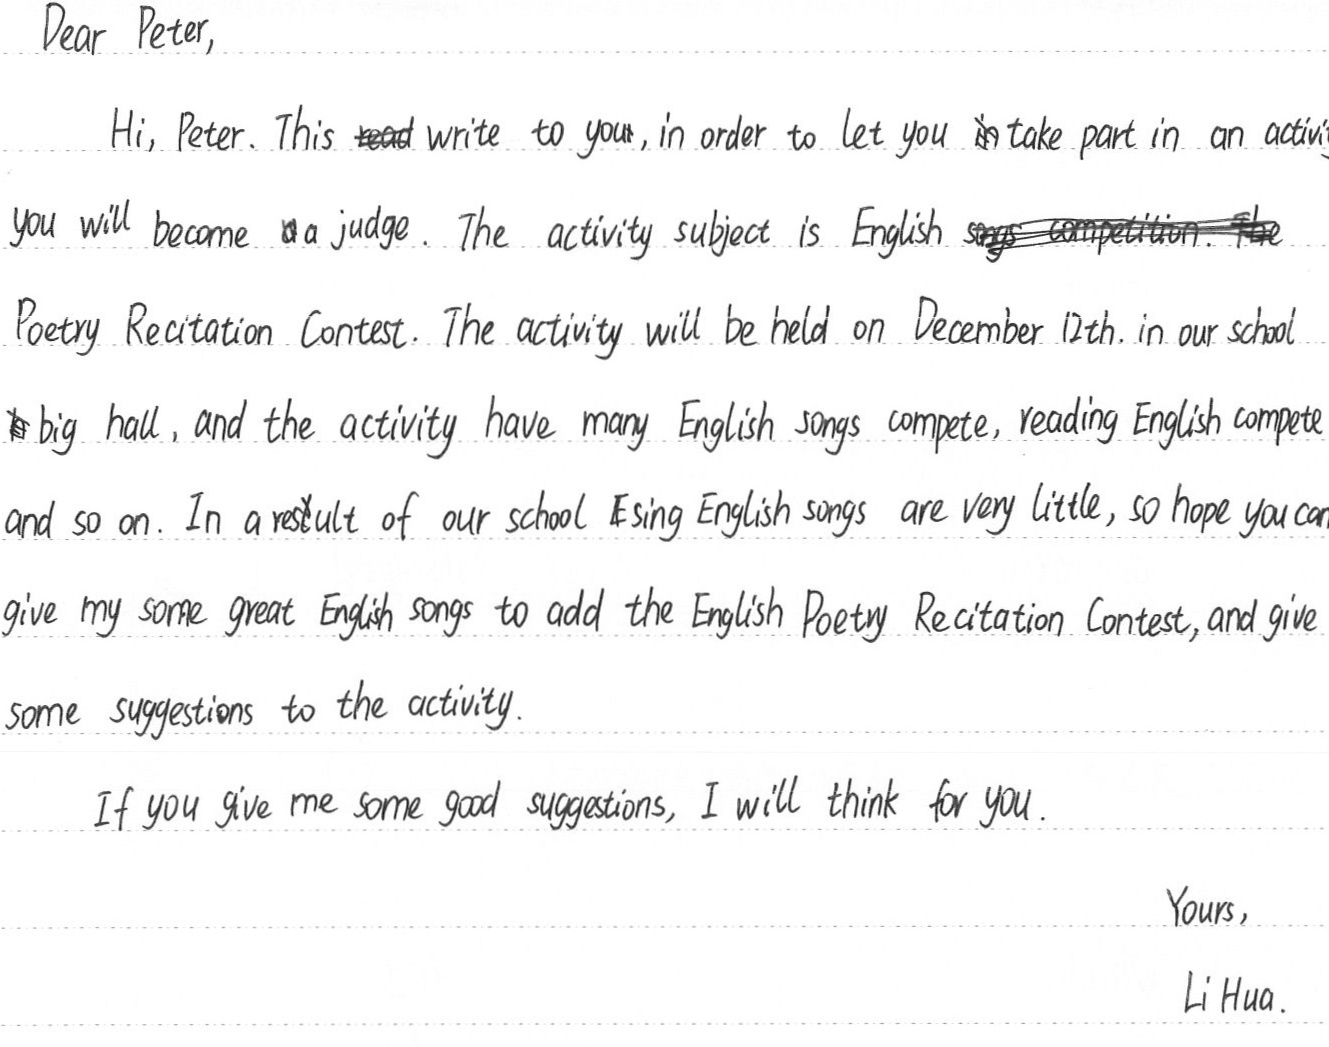 Dear Peter,
Hi, Peter. This write to you, in order to let you take part in an activi
you will become a judge. The activity subject is English
Poetry Recitation Contest. The activity will be held on December 12th. in our school
big hall, and the activity have many English songs compete, reading English compete
and so on. In a result of our school sing English songs are very little, so hope you can
give my some great English songs to add the English Poetry Recitation Contest, and give
some suggestions to the activity.
If you give me some good suggestions, I will think for you.
Yours,
Li Hua.